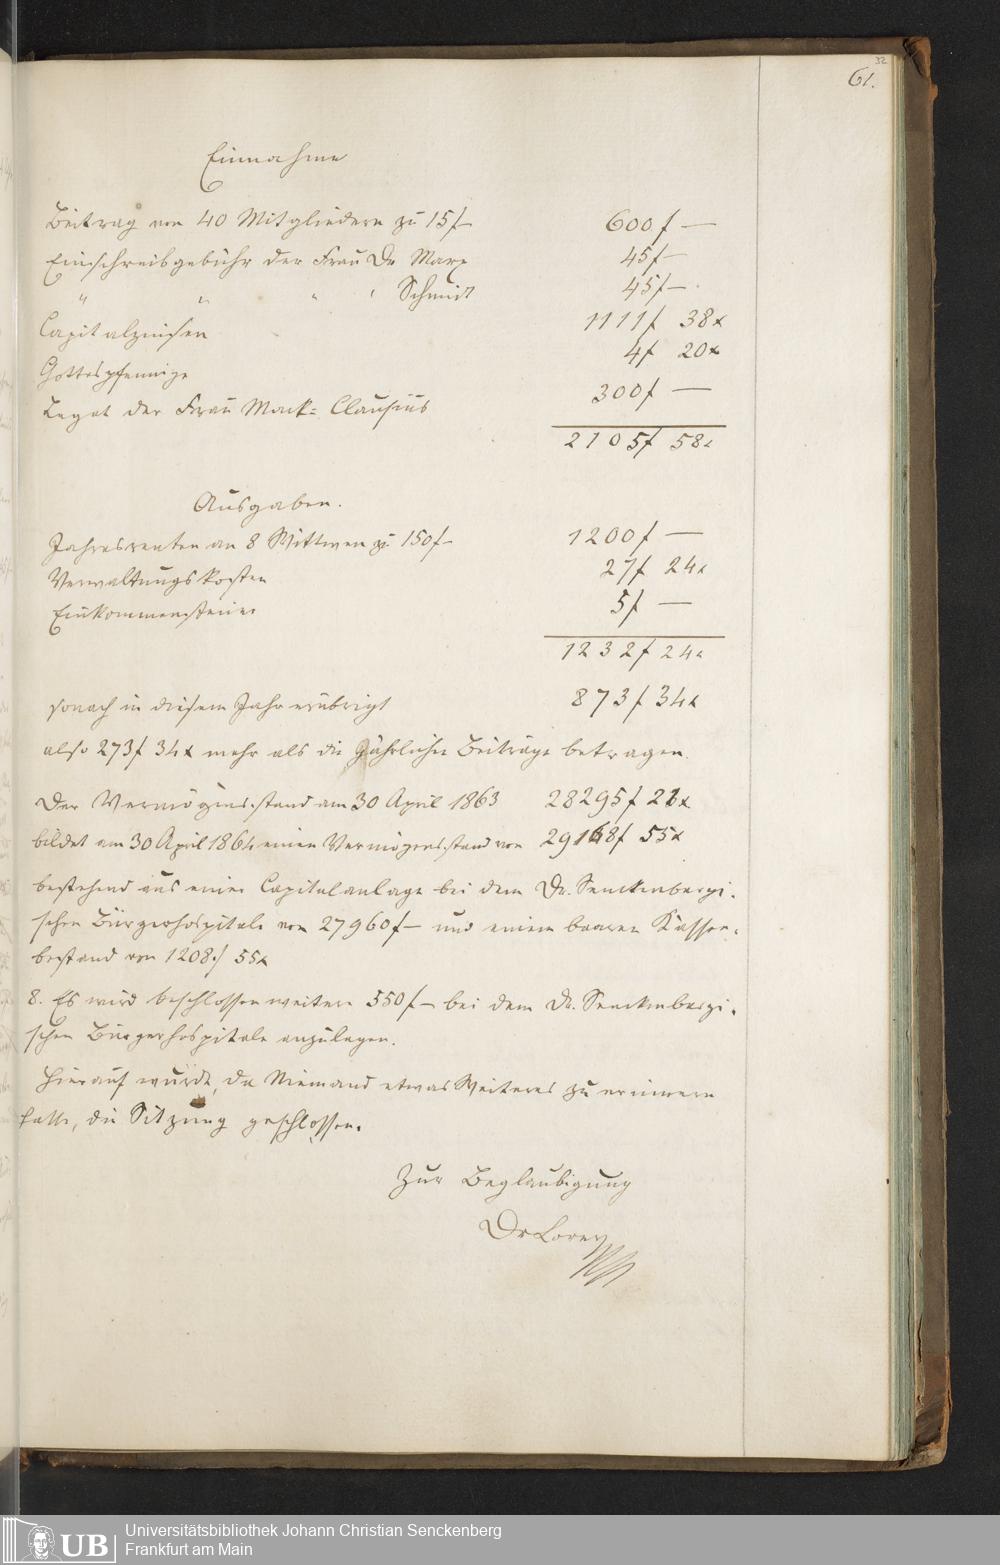 32
61.
Einnahme
Beitrag von 40 Mitgliedern zu 15f — 600f —
Einschreibgebühr der Frau Dr Marx 45f —
" " " " Schmidt 45f —
Capitalzinsen 1111f 38x
Gottespfennige 4f 20x
Legat der Frau Mack-Clausius 300f —
2105f 58x
Ausgaben.
Jahresrenten an 8 Wittwen zu 150f — 1200f —
Verwaltungskosten 27f 24x
Einkommensteuer 5f —
1232f 24x
sonach in diesem Jahr erübrigt 873f 34x
also 273f 34x mehr als die jährlichen Beiträge betragen.
Der Vermögensstand am 30 April 1863 28295f 21x
bildet am 30 April 1864 einen Vermögensstand von 29168f 55x
bestehend aus einer Capitalanlage bei dem Dr. Senckenbergi-
schen Bürgerhospitale von 27960f — und einem baaren Kassen-
bestand von 1208f 55x
8. Es wird beschlossen weitere 550f — bei dem Dr. Senckenbergi-
schen Bürgerhospitale anzulegen.
Hierauf wurde, da Niemand etwas Weiteres zu erinnern
hatte, die Sitzung geschlossen.
Zur Beglaubigung
Dr Lorey
UB
Universitätsbibliothek Johann Christian Senckenberg
Frankfurt am Main